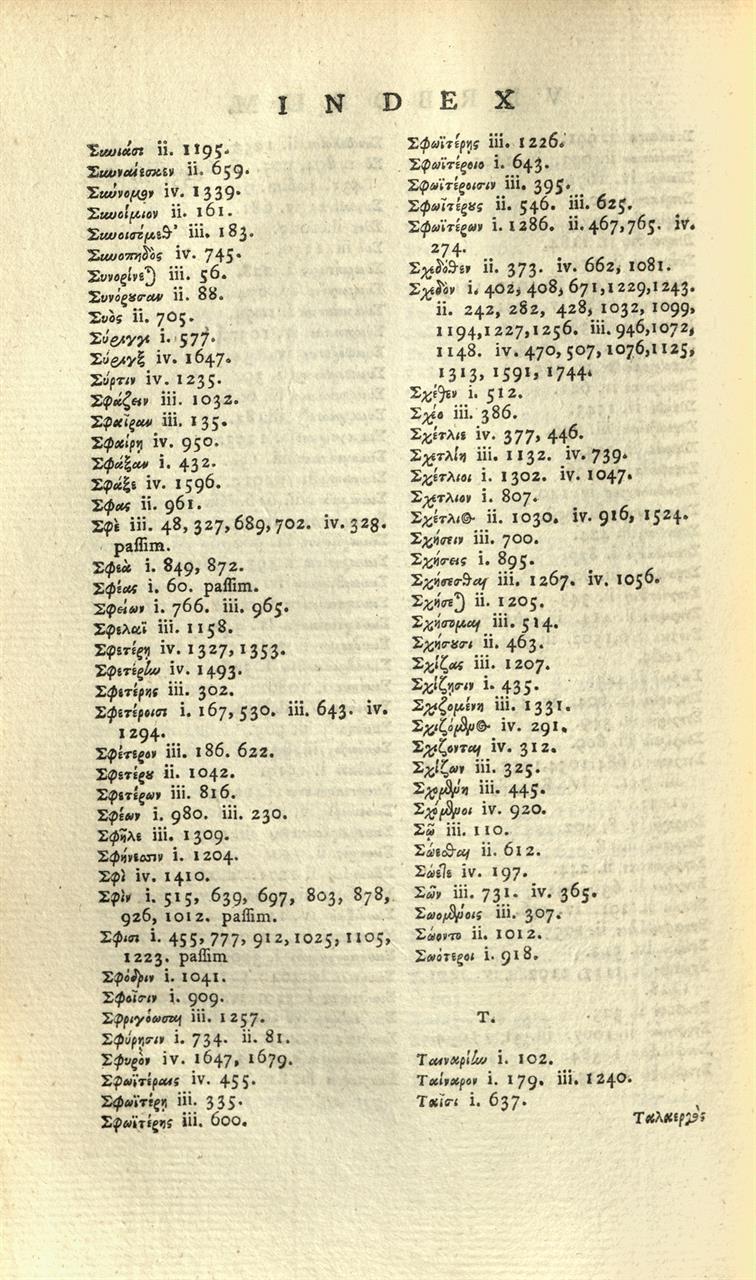 INDEX
Συνιᾶσι ii. 1195.
Συνναίεσκεν ii. 659.
Συνόνομον iv. 1339.
Συνοίμιον ii. 161.
Συνοισόμεθ' iii. 183.
Συνοπηδὸς iv. 745.
Συνορίνεται iii. 56.
Συνόρουσαν ii. 88.
Συὸς ii. 705.
Σύριγγι i. 577.
Σύριγξ iv. 1647.
Σύρτιν iv. 1235.
Σφάζειν iii. 1032.
Σφαῖραν iii. 135.
Σφαίρη iv. 950.
Σφάξαν i. 432.
Σφάξε iv. 1596.
Σφας ii. 961.
Σφὲ iii. 48, 327, 689, 702. iv. 328.
passim.
Σφεὰ i. 849, 872.
Σφέας i. 60. passim.
Σφείων i. 766. iii. 965.
Σφελαῒ iii. 1158.
Σφετέρη iv. 1327, 1353.
Σφετέρην iv. 1493.
Σφετέρης iii. 302.
Σφετέροισι i. 167, 530. iii. 643. iv.
1294.
Σφέτερον iii. 186. 622.
Σφετέρου ii. 1042.
Σφετέρων iii. 816.
Σφέων i. 980. iii. 230.
Σφῆλε iii. 1309.
Σφήνεσσιν i. 1204.
Σφὶ iv. 1410.
Σφὶν i. 515, 639, 697, 803, 878,
926, 1012. passim.
Σφισι i. 455, 777, 912, 1025, 1105,
1223. passim
Σφόδριν i. 1041.
Σφοῖσιν i. 909.
Σφριγόωσαι iii. 1257.
Σφύρῃσιν i. 734. ii. 81.
Σφυρὸν iv. 1647, 1679.
Σφωϊτέραις iv. 455.
Σφωϊτέρη iii. 335.
Σφωϊτέρης iii. 600.
Σφωϊτέρης iii. 1226.
Σφωϊτέροιο i. 643.
Σφωϊτέροισιν iii. 395.
Σφωϊτέρους ii. 546. iii. 625.
Σφωϊτέρων i. 1286. ii. 467, 765. iv.
274.
Σχεδόθεν ii. 373. iv. 662, 1081.
Σχεδὸν i. 402, 408, 671, 1229, 1243.
ii. 242, 282, 428, 1032, 1099,
1194, 1227, 1256. iii. 946, 1072,
1148. iv. 470, 507, 1076, 1125,
1313, 1591, 1744.
Σχέθεν i. 512.
Σχέο iii. 386.
Σχέτλιε iv. 377, 446.
Σχετλίη iii. 1132. iv. 739.
Σχέτλιοι i. 1302. iv. 1047.
Σχετλιον i. 807.
Σχέτλιος ii. 1030. iv. 916, 1524.
Σχήσειν iii. 700.
Σχήσεις i. 895.
Σχήσεσθαι iii. 1267. iv. 1056.
Σχήσεται ii. 1205.
Σχήσομαι iii. 514.
Σχήσουσι ii. 463.
Σχίζας iii. 1207.
Σχίζῃσιν i. 435.
Σχιζομένη iii. 1331.
Σχιζόμενος iv. 291.
Σχίζονται iv. 312.
Σχίζων iii. 325.
Σχομένη iii. 445.
Σχόμενοι iv. 920.
Σῷ iii. 110.
Σώεσθαι ii. 612.
Σώετε iv. 197.
Σῶν iii. 731. iv. 365.
Σωομένοις iii. 307.
Σώοντο ii. 1012.
Σωότεροι i. 918.
T.
Ταιναρίην i. 102.
Ταίναρον i. 179. iii. 1240.
Ταῖσι i. 637.
Ταλαεργὸς